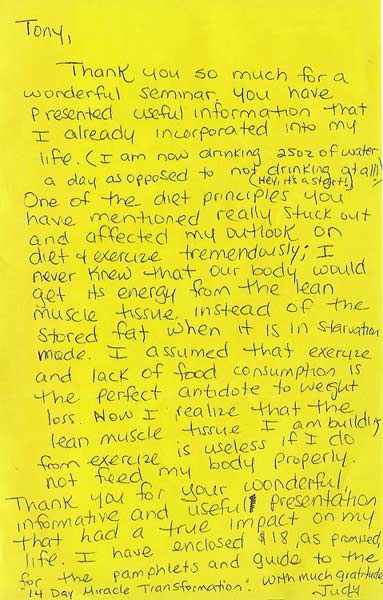 Tony,
Thank you so much for a
wonderful seminar. You have
presented useful information that
I already incorporated into my
life. (I am now drinking 25oz of water
a day as opposed to not drinking at all!)
(Hey, it's a start!)
One of the diet principles you
have mentioned really stuck out
and affected my outlook on
diet & exercize tremendously; I
never knew that our body would
get its energy from the lean
muscle tissue instead of the
stored fat when it is in starvation
mode. I assumed that exercize
and lack of food consumption is
the perfect antidote to weight
loss. Now I realize that the
lean muscle tissue I am building
from exercize is useless if I do
not feed my body properly.
Thank you for your wonderful,
informative and useful presentation
that had a true impact on my
life. I have enclosed $18, as promised
for the pamphlets and guide to the
"14 Day Miracle Transformation". With much gratitude,
Judy